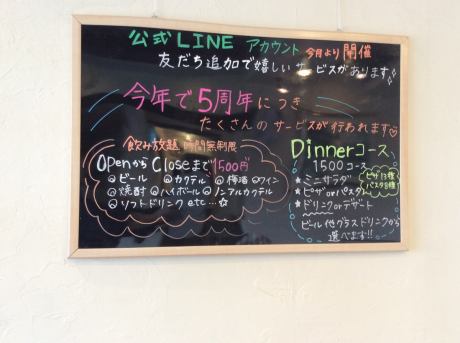 公式LINE アカウント 今月より開催
友だち追加で嬉しいサービスがあります
今年で5周年につき
たくさんのサービスが行われます♡
飲み放題 時間無制限
OpenからCloseまで1500円
◎ビール ◎カクテル ◎梅酒 ◎ワイン
◎焼酎 ◎ハイボール ◎ノンアルカクテル
◎ソフトドリンク etc…☆
Dinnerコース
1500コース
★ミニサラダ
★ピザorパスタ
★ドリンクorデザート
ピザ13種
パスタ8種
ビール他グラスドリンクから
選べます!!